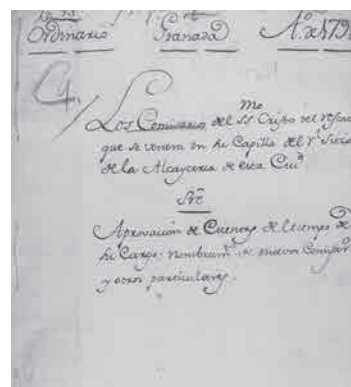 Ordinario Granada A.º de 179
C4.
Los Comisarios del SS.mo Cristo del
que se venera en la Capilla del R.l
de la Alcayceria de esta Ciu.d
Sre
Aprovacion de Cuentas del tiempo de
su Cargo: nombram.to de nuevos
y otros particulares.